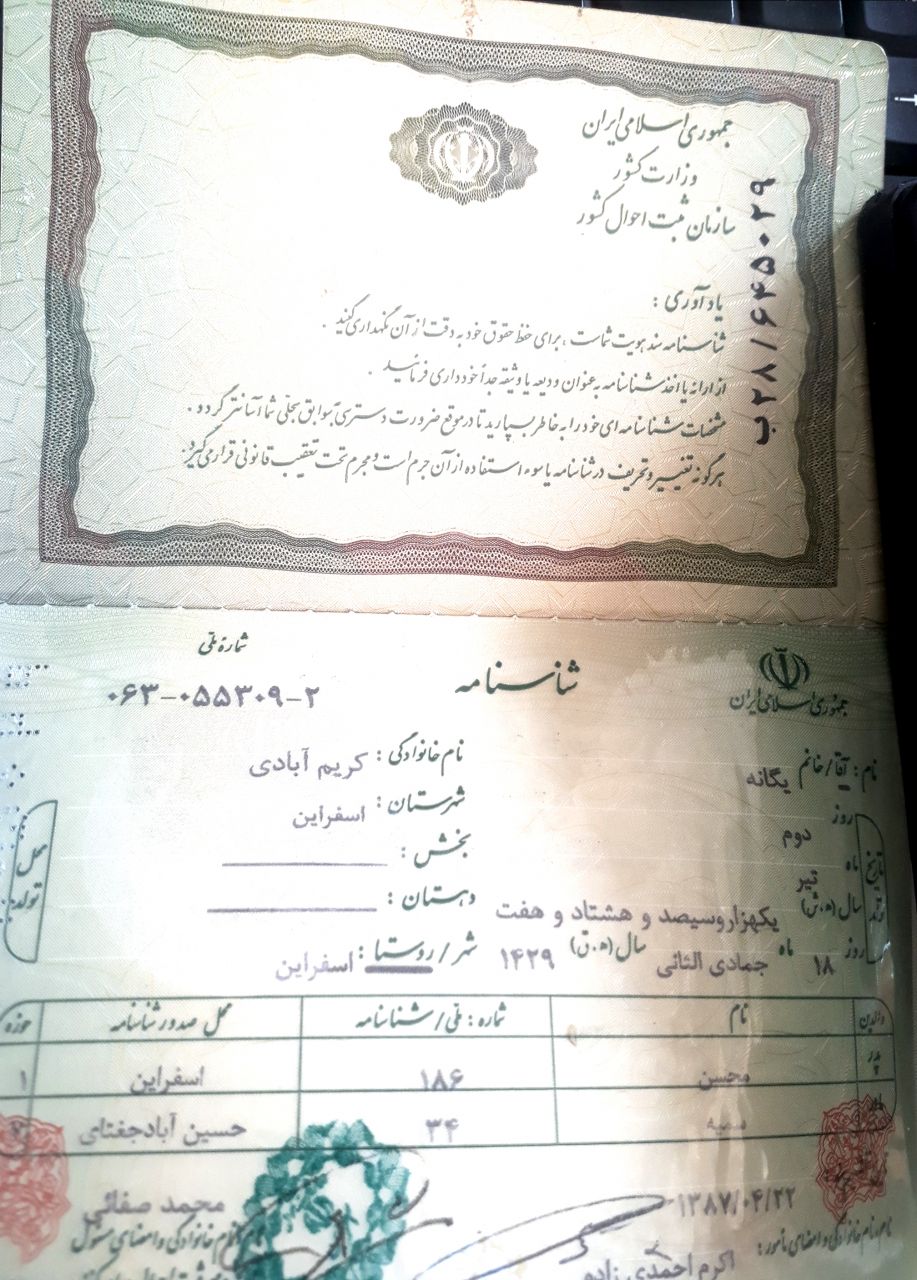 جمهوری اسلامی ایران
وزارت کشور
سازمان ثبت احوال کشور
ب۲۸/۶۴۵۰۲۹
یادآوری :
شناسنامه سند هویت شماست ، برای حفظ حقوق خود به دقت از آن نگهداری کنید .
از ارائه یا اخذ شناسنامه به عنوان ودیعه یا وثیقه جداً خودداری فرمائید .
مشخصات شناسنامه ای خود را به خاطر بسپارید تا در موقع ضرورت دسترسی به سوابق سجلی شما آسانتر گردد .
هرگونه تغییر و تحریف در شناسنامه یا سوء استفاده از آن جرم است و مجرم تحت تعقیب قانونی قرار می گیرد.
جمهوری اسلامی ایران
شناسنامه
شماره ملی
۰۶۳-۰۵۵۳۰۹-۲
نام : آقا/خانم یگانه
نام خانوادگی : کریم آبادی
تاریخ تولد
روز دوم
ماه تیر
سال (ه.ش) یکهزاروسیصد و هشتاد و هفت
روز ۱۸ ماه جمادی الثانی سال (ه.ق) ۱۴۲۹
محل تولد
شهرستان : اسفراین
بخش :
دهستان :
شهر/روستا : اسفراین
والدین نام شماره : ملی/شناسنامه محل صدور شناسنامه حوزه
پدر محسن ۱۸۶ اسفراین ۱
مادر سمیه ۳۴ حسین آبادجغتای
۱۳۸۷/۰۴/۲۲
محمد صفائی
نام و نام خانوادگی و امضای مأمور :
نام خانوادگی و امضای مسئول
اکرم احمدی زاده